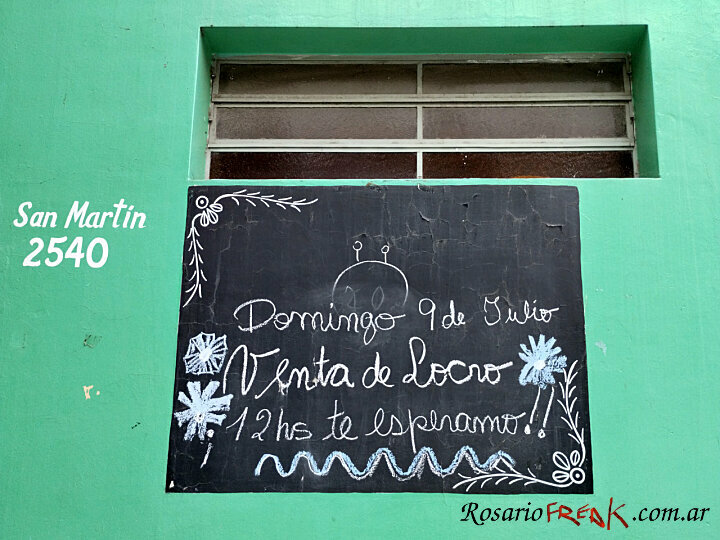 San Martín
2540
Domingo 9 de Julio
Venta de Locro
¡12hs te esperamo!!
RosarioFREAK.com.ar